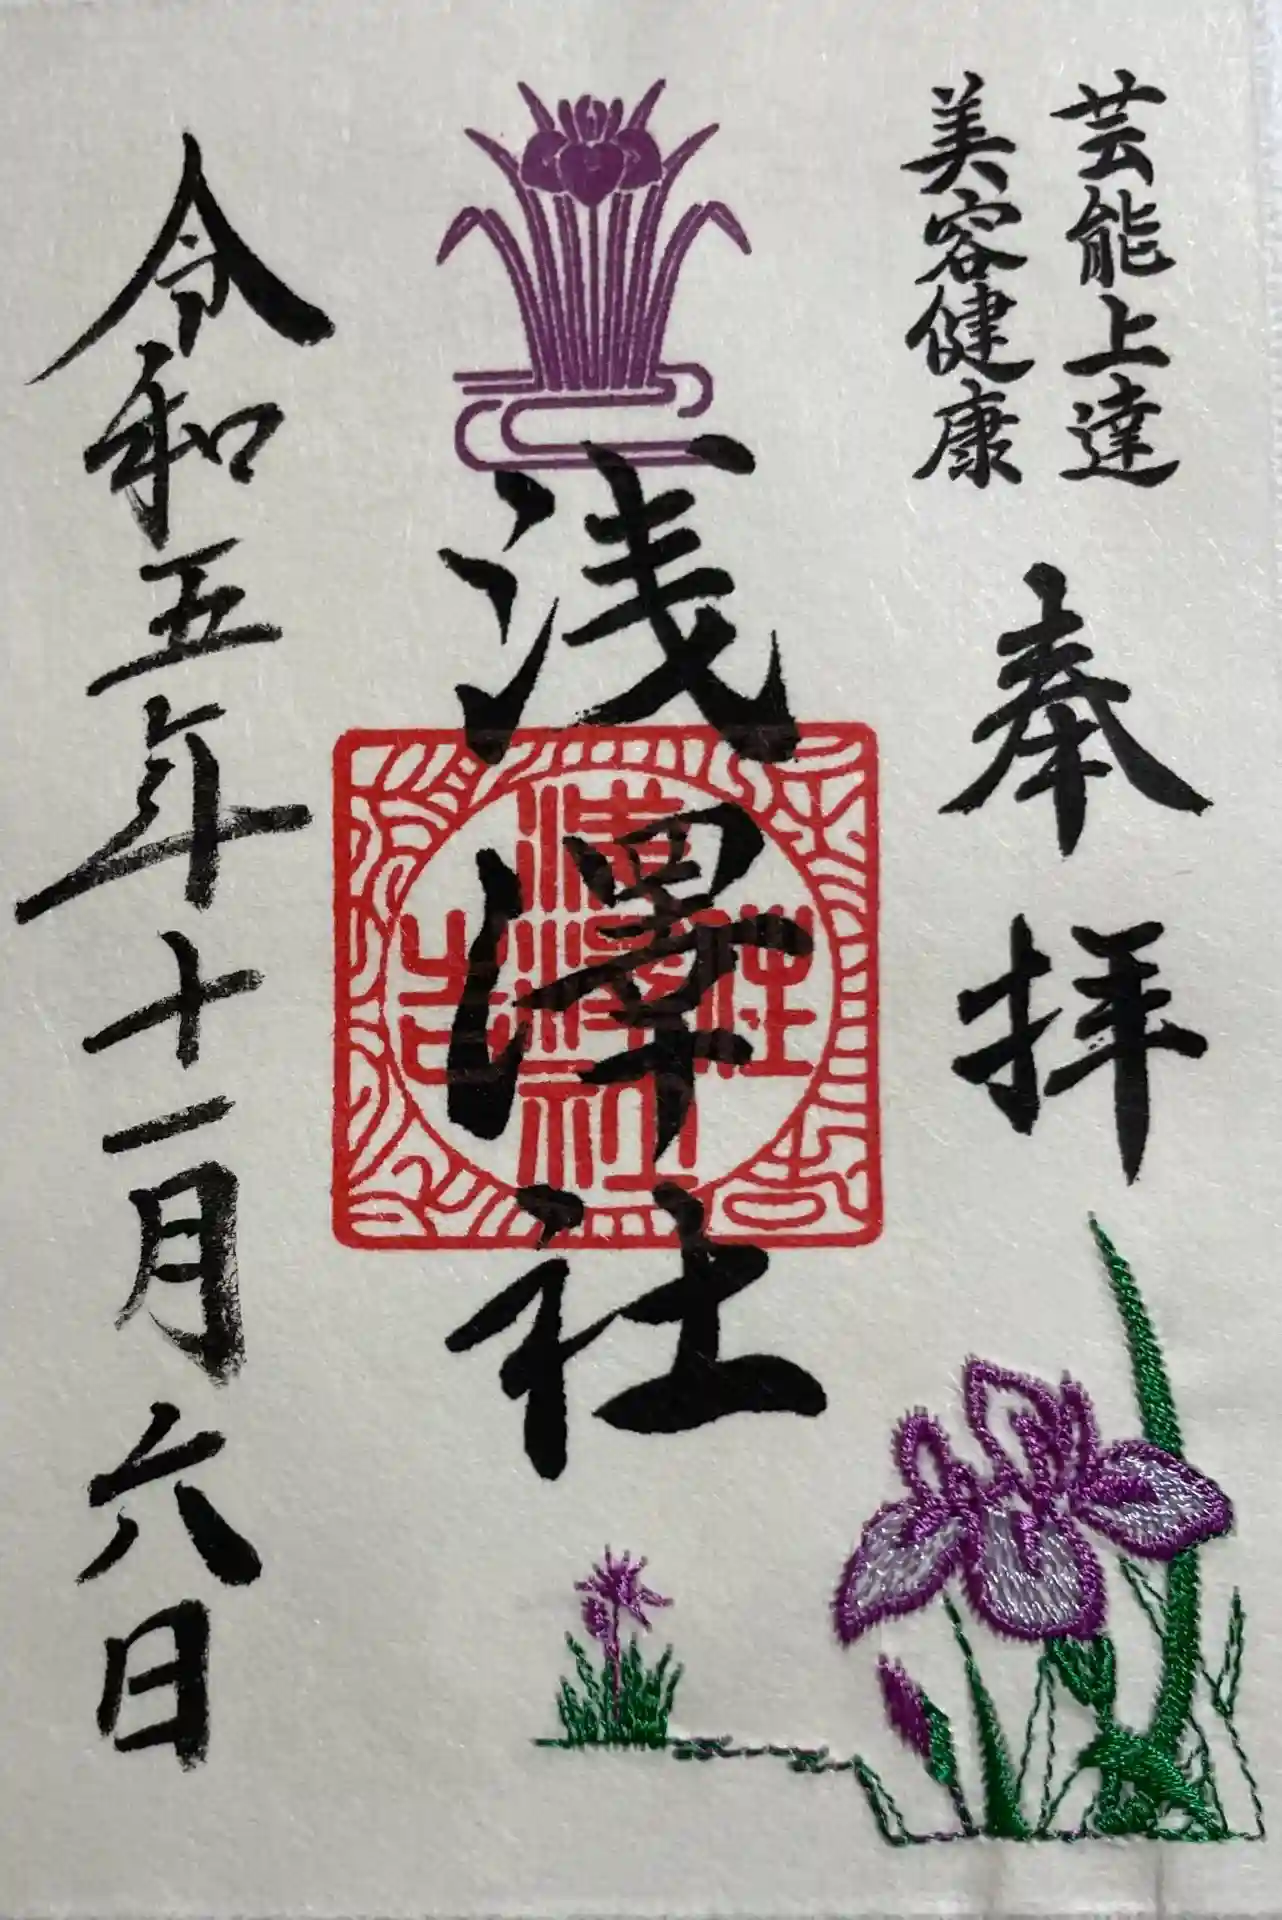 芸能上達
美容健康
奉拝
浅澤社
住吉
浅澤社
令和五年十一月六日